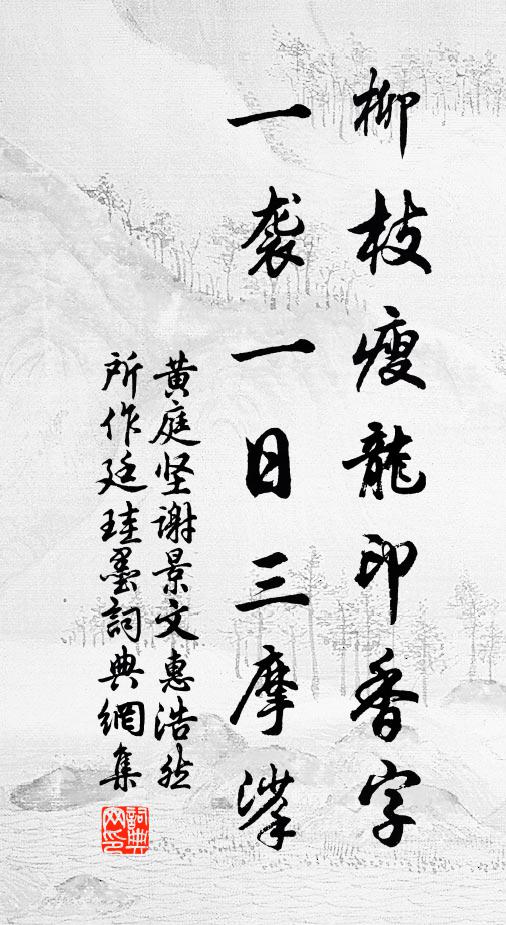 柳枝瘦龍印香字
一袭一日三摩挲
黄庭坚谢景文惠浩然
所作廷珪墨詞典網集
詞典
网印